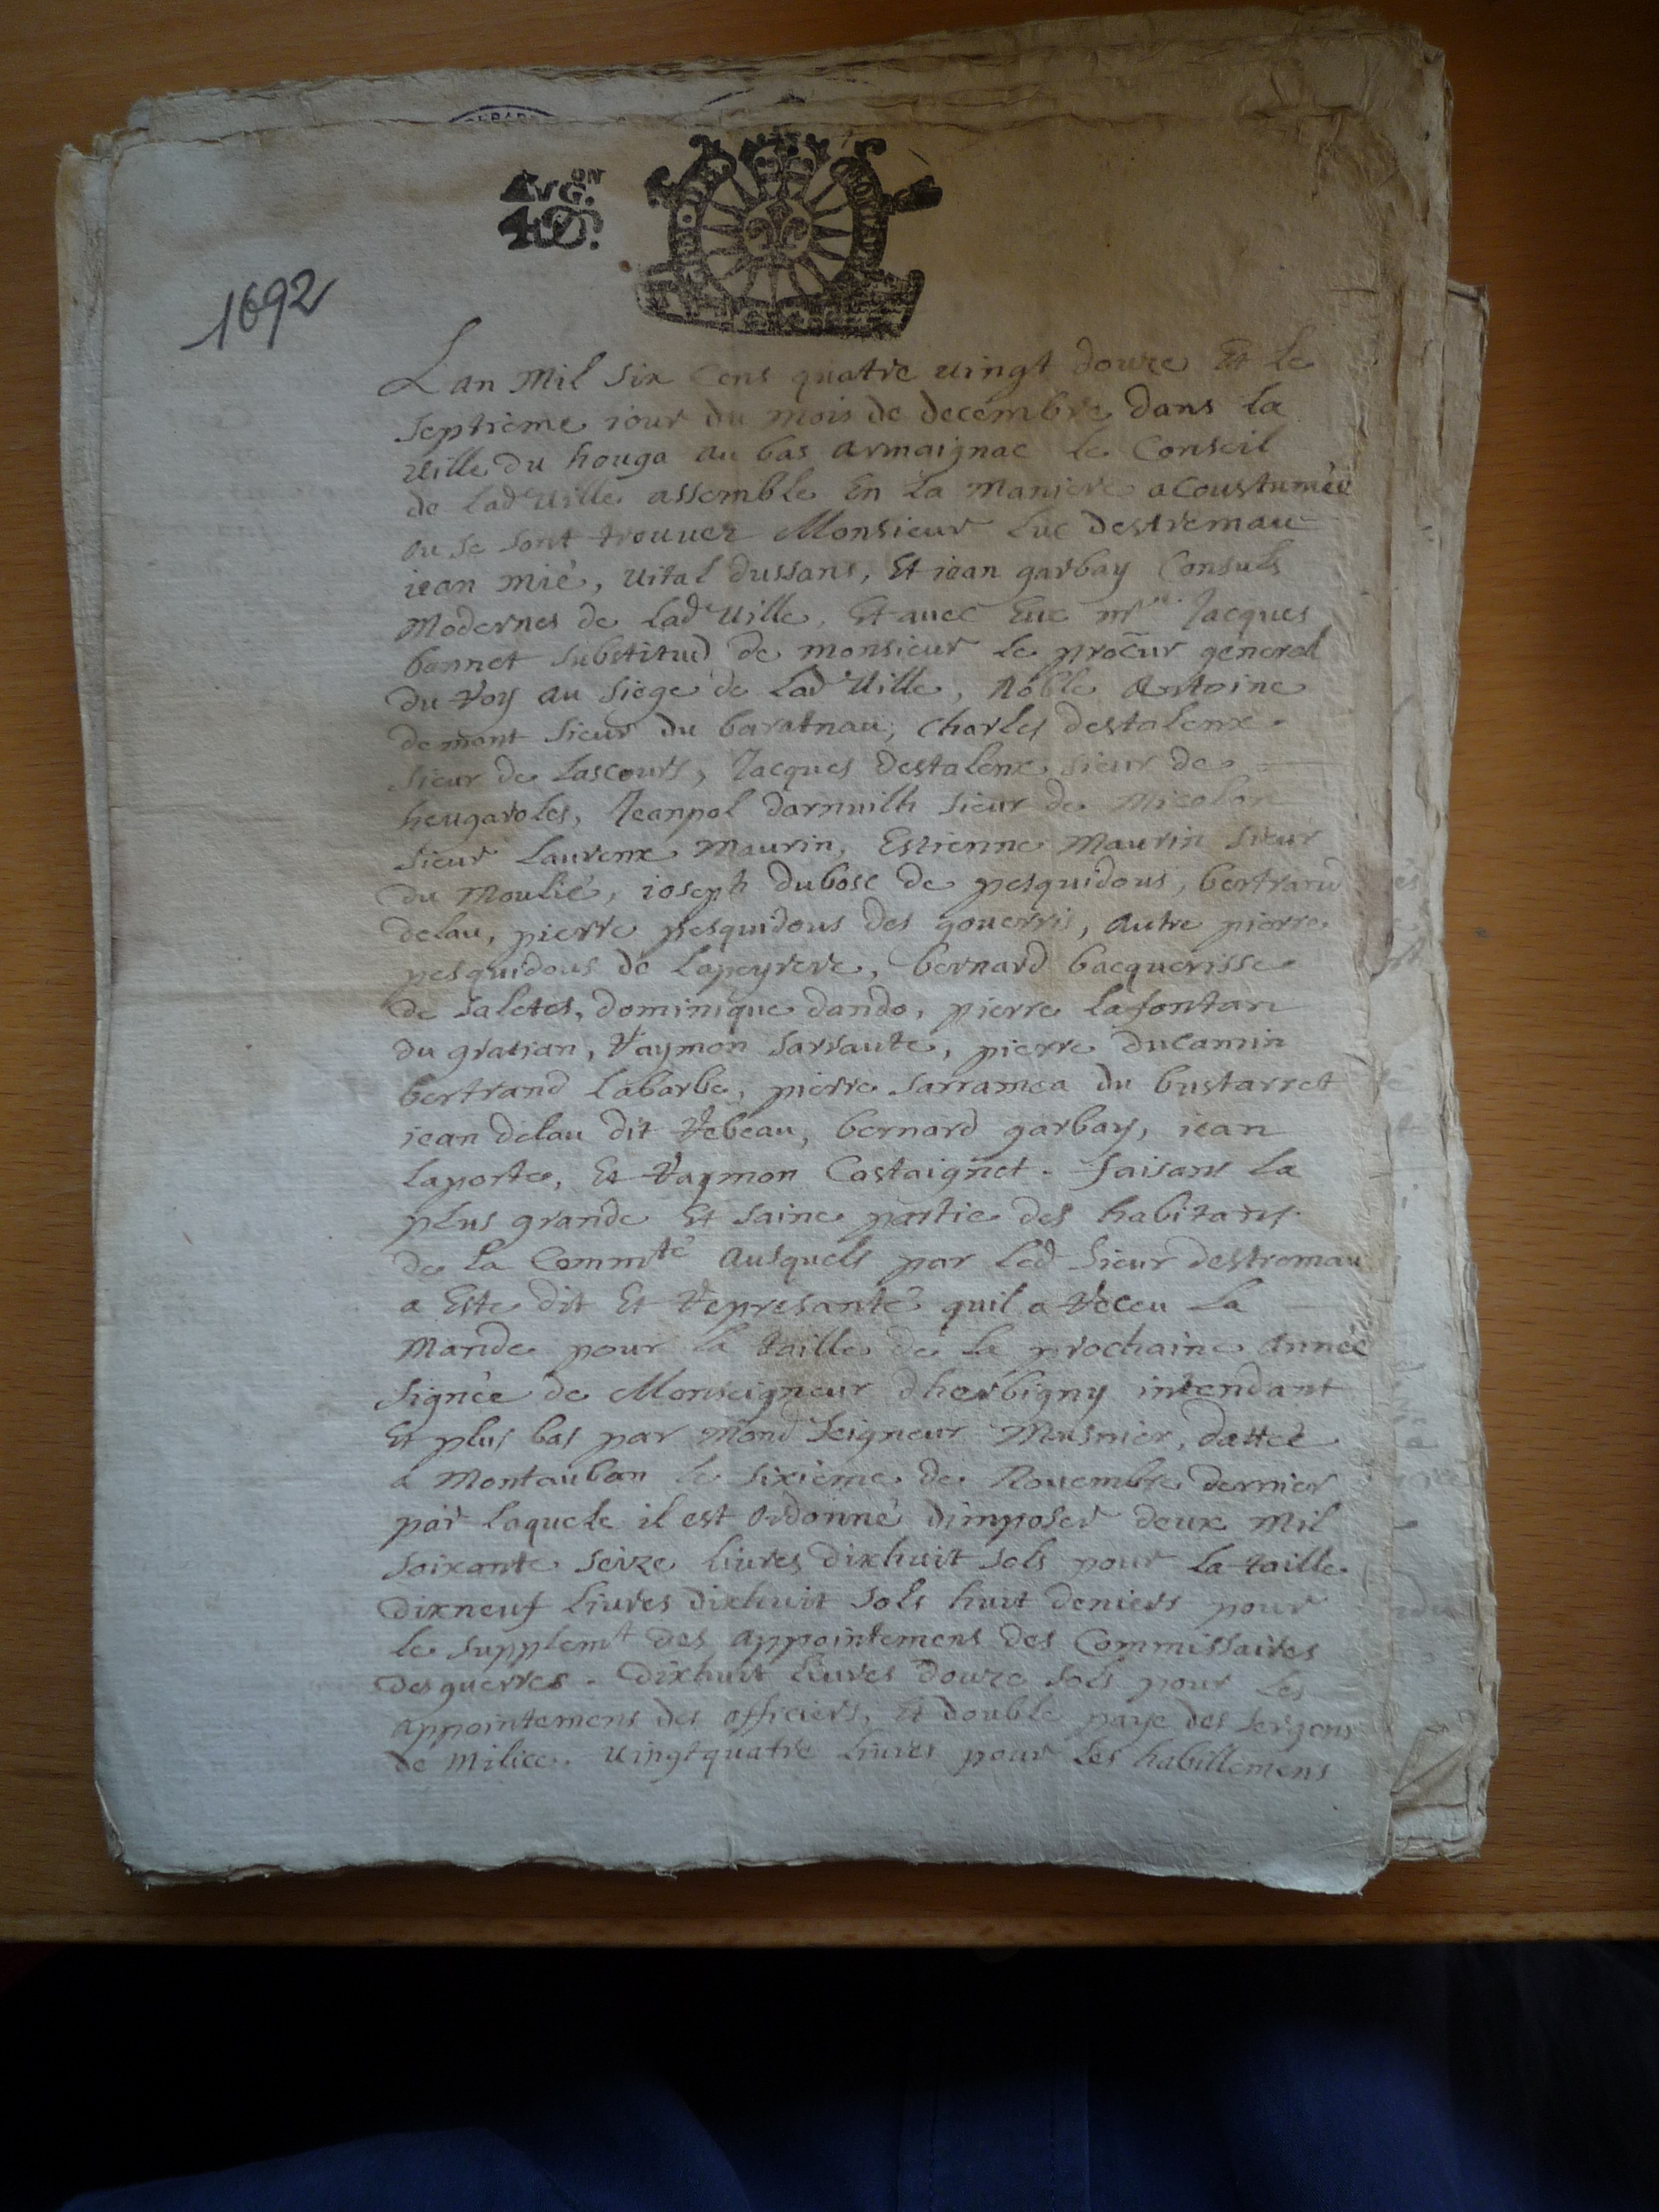 AVG.ON
4 D.
1692
Lan Mil Six Cens quatre vingt douze Et le
Septieme iour du mois de decembre dans la
ville du houga au bas armaignac le Conseil
de lad ville assemble En la maniere acoustumée
ou se sont trouuez Monsieur Luc destremau
iean mié, vital dussans, Et iean garbay Consuls
Modernes de lad ville, Et auec Eux mr Jacques
bonnet substitud de monsieur le procur general
du roy au siege de lad ville, Noble Antoine
demont sieur du baratnau, Charles destalenx
sieur de Lascours, Jacques destalenx sieur de
heugaroles, Jeanpol darmuilh sieur de Micolon
sieur Laurenx Maurin, Estienne Maurin sieur
du Moulié, ioseph dubosc de pesquidous, bertrand
delau, pierre pesquidous des gouerris, autre pierre
pesquidous de Lapeyrere, bernard bacquerisse
de saletes, dominique dando, pierre Lafontan
du gratian, raymon sarraute, pierre ducamin
bertrand labarbe, pierre sarramea du bustarret
iean delau dit rebeau, bernard garbay, iean
laporte, Et raymon Castaignet. faisans la
plus grande Et saine partie des habitans
de la Commté ausquels par led sieur destremau
a Este dit Et represanté quil a receu la
Mande pour la taille de la prochaine année
signée de Monseigneur dherbigny intendant
Et plus bas par mond seigneur Musnier, dattée
a Montauban le sixieme de Nouembre dernier
par laquele il est ordonné dimposer deux mil
soixante seize liures dixhuit sols pour la taille.
dixneuf liures dixhuit sols huit deniers pour
le supplemt des appointemens des Commissaires
des guerres. dixhuit liures douze sols pour les
appointemens des officiers, Et double paye des sergens
de milice. vingtquatre liures pour les habillemens